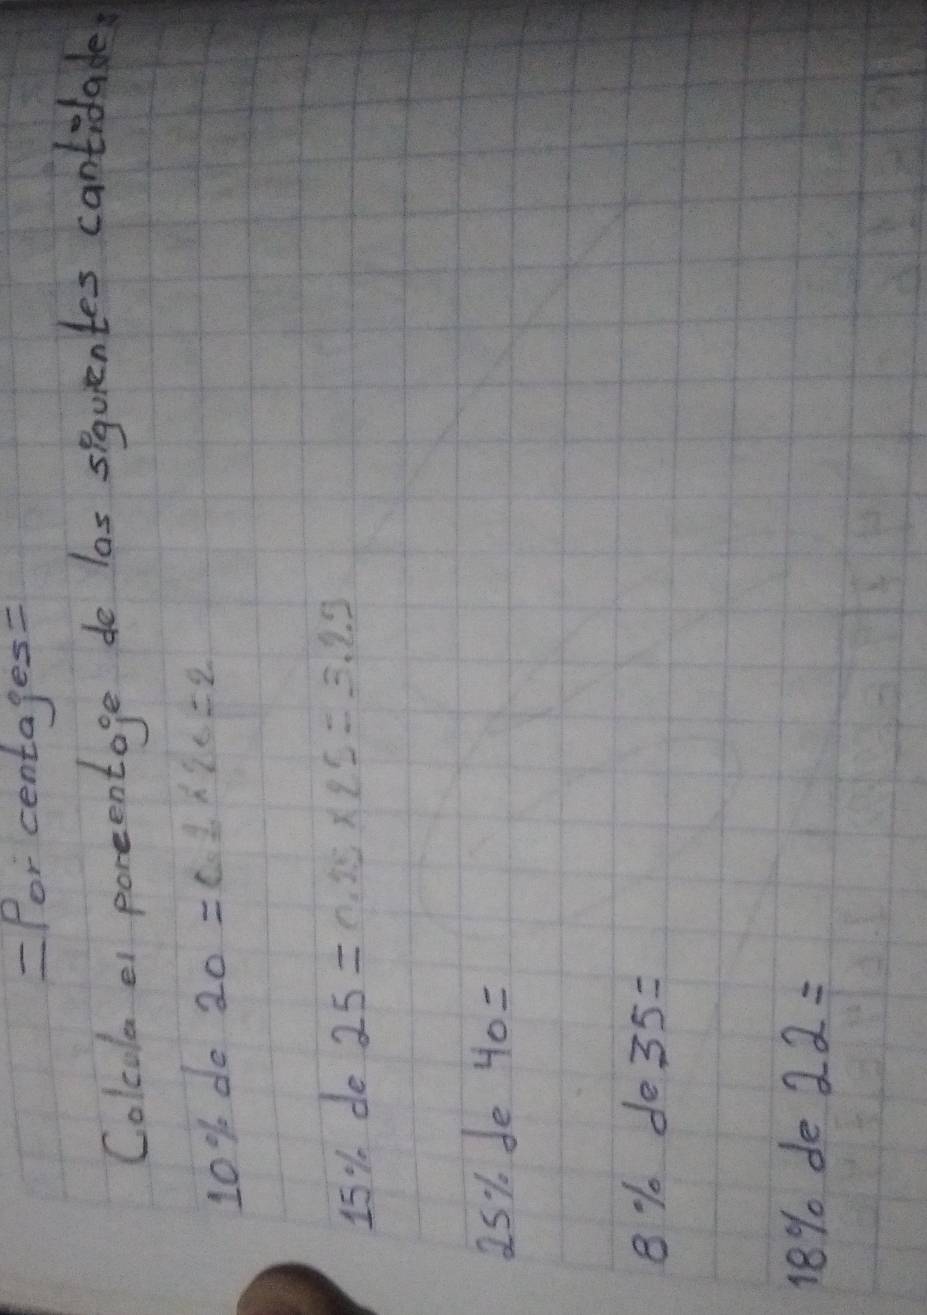 =Porcentajes=
Calcula el porcentaje de las siguientes cantidades:
10% de 20 = 0.1 x 20 = 2
15% de 25 = x 25 =
25% de 40 =
8% de 35 =
18% de 22 =